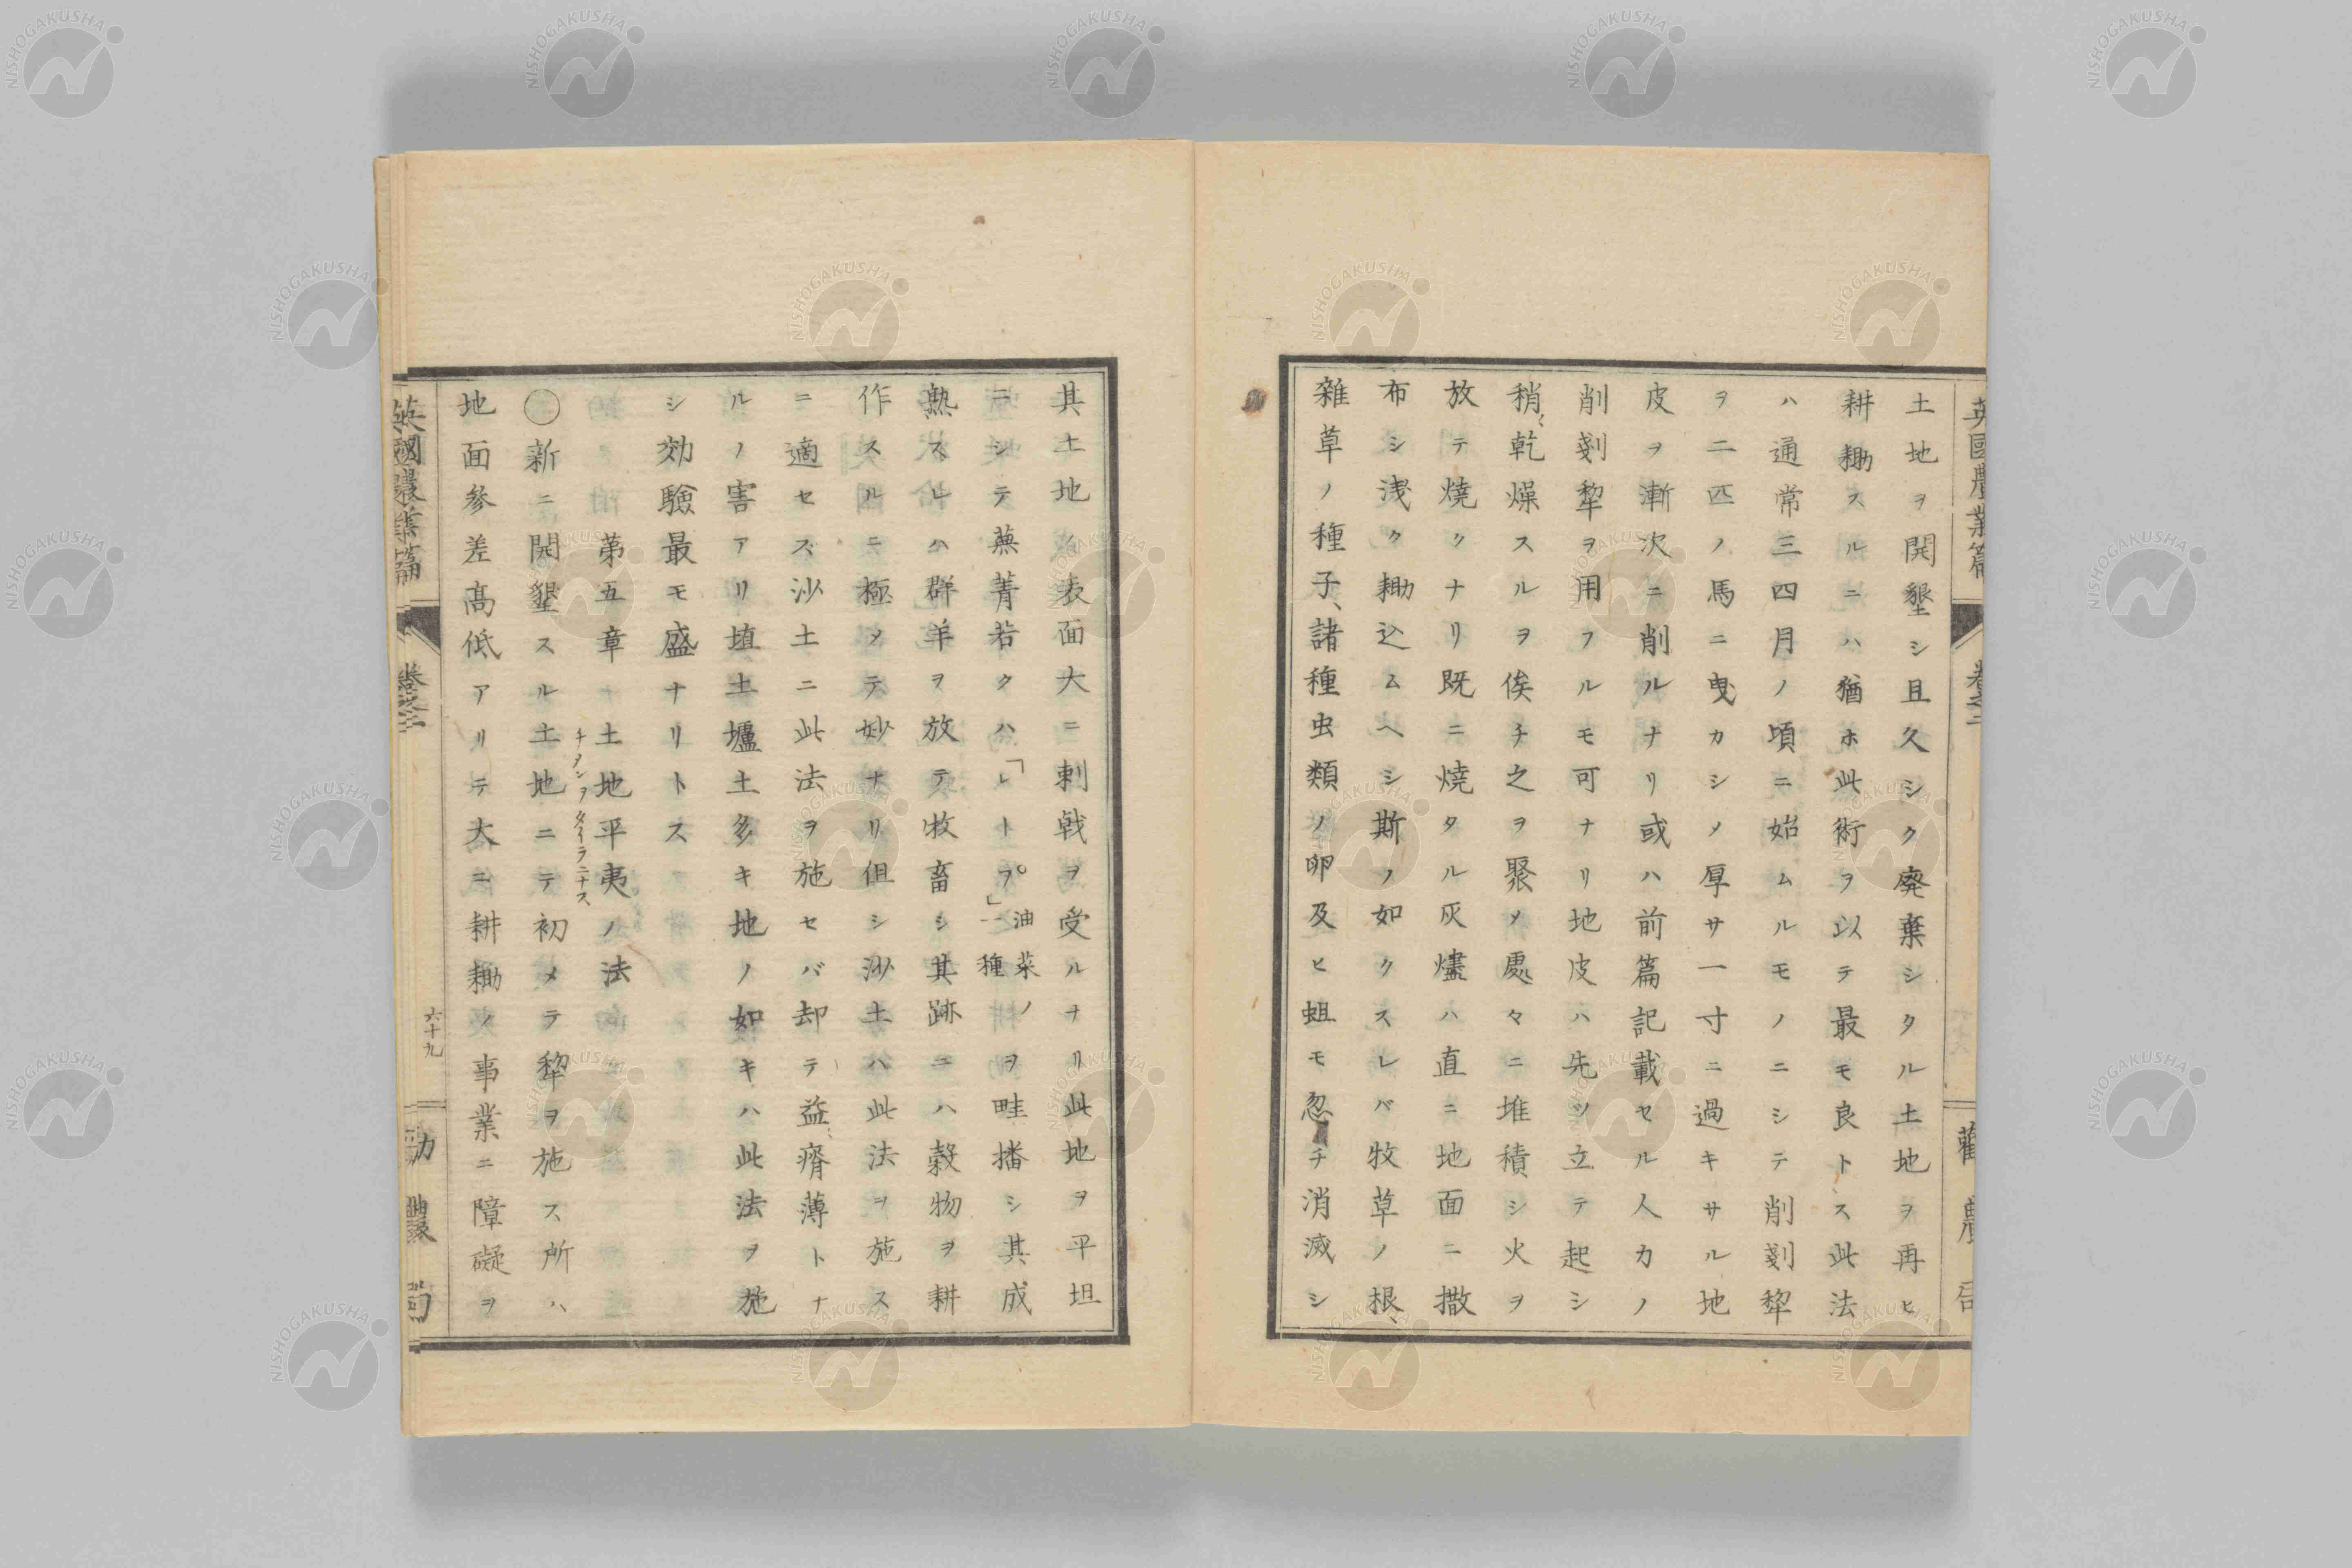 土地ヲ開墾シ且久シク廃棄シタル土地ヲ再ヒ
耕耡スルニハ猶ホ此術ヲ以テ最モ良トス此法
ハ通常三四月ノ頃ニ始ムルモノニシテ削剗犂
ヲ二匹ノ馬ニ曳カシメ厚サ一寸ニ過キサル地
皮ヲ漸次ニ削ルナリ或ハ前篇記載セル人力ノ
削剗犂ヲ用フルモ可ナリ地皮ハ先ツ立テ起シ
稍〻乾燥スルヲ俟チ之ヲ聚メ處々ニ堆積シ火ヲ
放テ焼クナリ既ニ焼タル灰燼ハ直ニ地面ニ撒
布シ浅ク耡込ムヘシ斯ノ如クスレバ牧草ノ根、
雜草ノ種子、諸種虫類ノ卵及ヒ蛆モ忽チ消滅シ
英國農業篇 卷之二 勸農局
其土地ノ表面大ニ刺戟ヲ受ルナリ此地ヲ平坦
ニシテ蕪菁若クハ「レトプ」油菜ノ一種ヲ畦播シ其成
熟スルハ群羊ヲ放テ牧畜シ其跡ニハ穀物ヲ耕
作スルニ極メテ妙ナリ但シ沙土ハ此法ヲ施ス
ニ適セズ沙土ニ此法ヲ施セバ却テ益〻瘠薄トナ
ルノ害アリ埴土壚土多キ地ノ如キハ此法ヲ施
シ効驗最モ盛ナリトス
第五章 土地平夷ノ法
チメンヲタイラニナス
○新ニ開墾スル土地ニテ初メテ犂ヲ施ス所ハ
地面參差高低アリテ大ニ耕耡ノ事業ニ障礙ヲ
英國農業篇 卷之二 六十九 勸農局
NISHOGAKUSHA